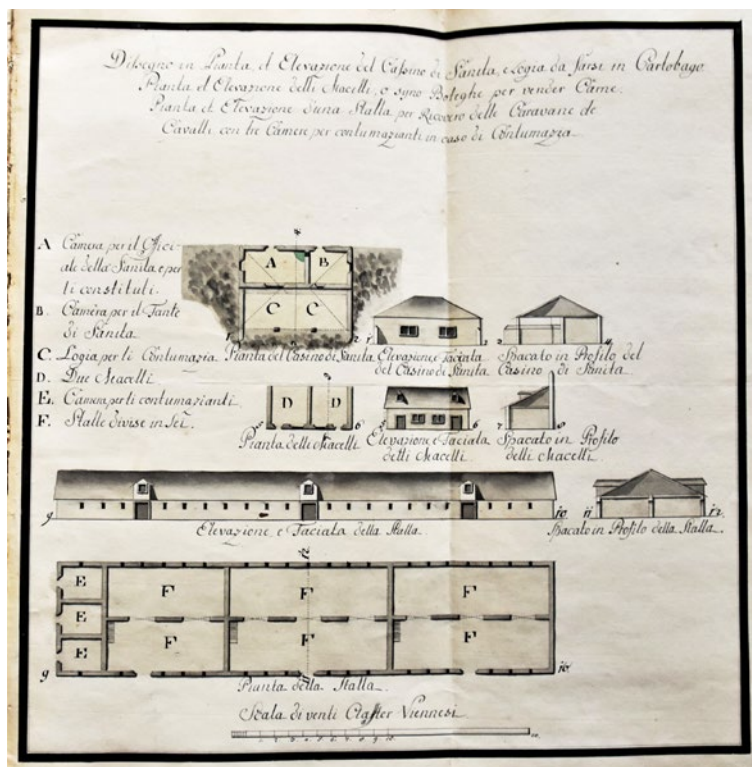 Dissegno in Pianta, et Elevazione del Cassino di Sanita, e Logia da farsi in Carlobago
Pianta et Elevazione delli Macelli, o syno Boteghe per vender Carne.
Pianta et Elevazione d'una Stalla per Ricovero delle Caravane de
Cavalli con tre Camere per contumazianti in caso di Contumazia.
A Camera per il Offici-
ale della Sanita, e per
li constituti.
B. Camera per il Fante
di Sanita.
C. Logia per li Contumazia
D. Due Macelli
E. Camere per li contumazianti.
F. Stalle divise in Sei.
A B
C C
1 2
Pianta del Casino di Sanita.
1 2
Elevazione, e Faciata
del Casino di Sanita.
3 4
Spacato in Profilo del
Casino di Sanita.
D D
5 6
Pianta delli Macelli.
5 6
Elevazione, e Faciata
delli Macelli.
7 8
Spacato in Profilo
delli Macelli.
9 10
Elevazione, e Faciata della Stalla.
11 12
Spacato in Profilo della Stalla.
12
E F F F
E
E F F F
9 11 10
Pianta della Stalla.
Scala di venti Clafter Viennesi
1 2 3 4 5 6 7 8 9 10 20